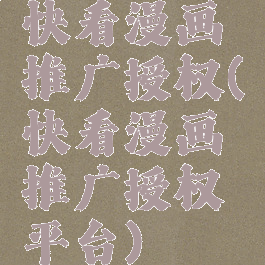 快看漫画
推广授权(
快看漫画
推广授权
平台)